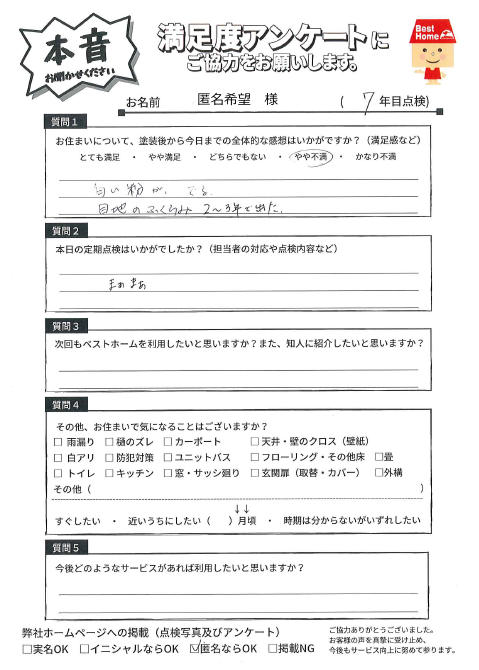 本音
お聞かせください
満足度アンケートに
ご協力をお願いします。
Best
Home
お名前 匿名希望 様 ( 7 年目点検)
質問1
お住まいについて、塗装後から今日までの全体的な感想はいかがですか？（満足感など）
とても満足 ・ やや満足 ・ どちらでもない ・ やや不満 ・ かなり不満
白い粉が、でる。
目地のふくらみ 2〜3年で出た。
質問2
本日の定期点検はいかがでしたか？（担当者の対応や点検内容など）
まぁまぁ
質問3
次回もベストホームを利用したいと思いますか？また、知人に紹介したいと思いますか？
質問4
その他、お住まいで気になることはございますか？
□ 雨漏り □ 樋のズレ □ カーポート □ 天井・壁のクロス（壁紙）
□ 白アリ □ 防犯対策 □ ユニットバス □ フローリング・その他床 □畳
□ トイレ □ キッチン □ 窓・サッシ廻り □ 玄関扉（取替・カバー） □外構
その他（ ）
↓↓
すぐしたい ・ 近いうちにしたい（ ）月頃 ・ 時期は分からないがいずれしたい
質問5
今後どのようなサービスがあれば利用したいと思いますか？
弊社ホームページへの掲載（点検写真及びアンケート）
□実名OK □イニシャルならOK ☑匿名ならOK □掲載NG
ご協力ありがとうございました。
お客様の声を真摯に受け止め、
今後もサービス向上に努めて参ります。